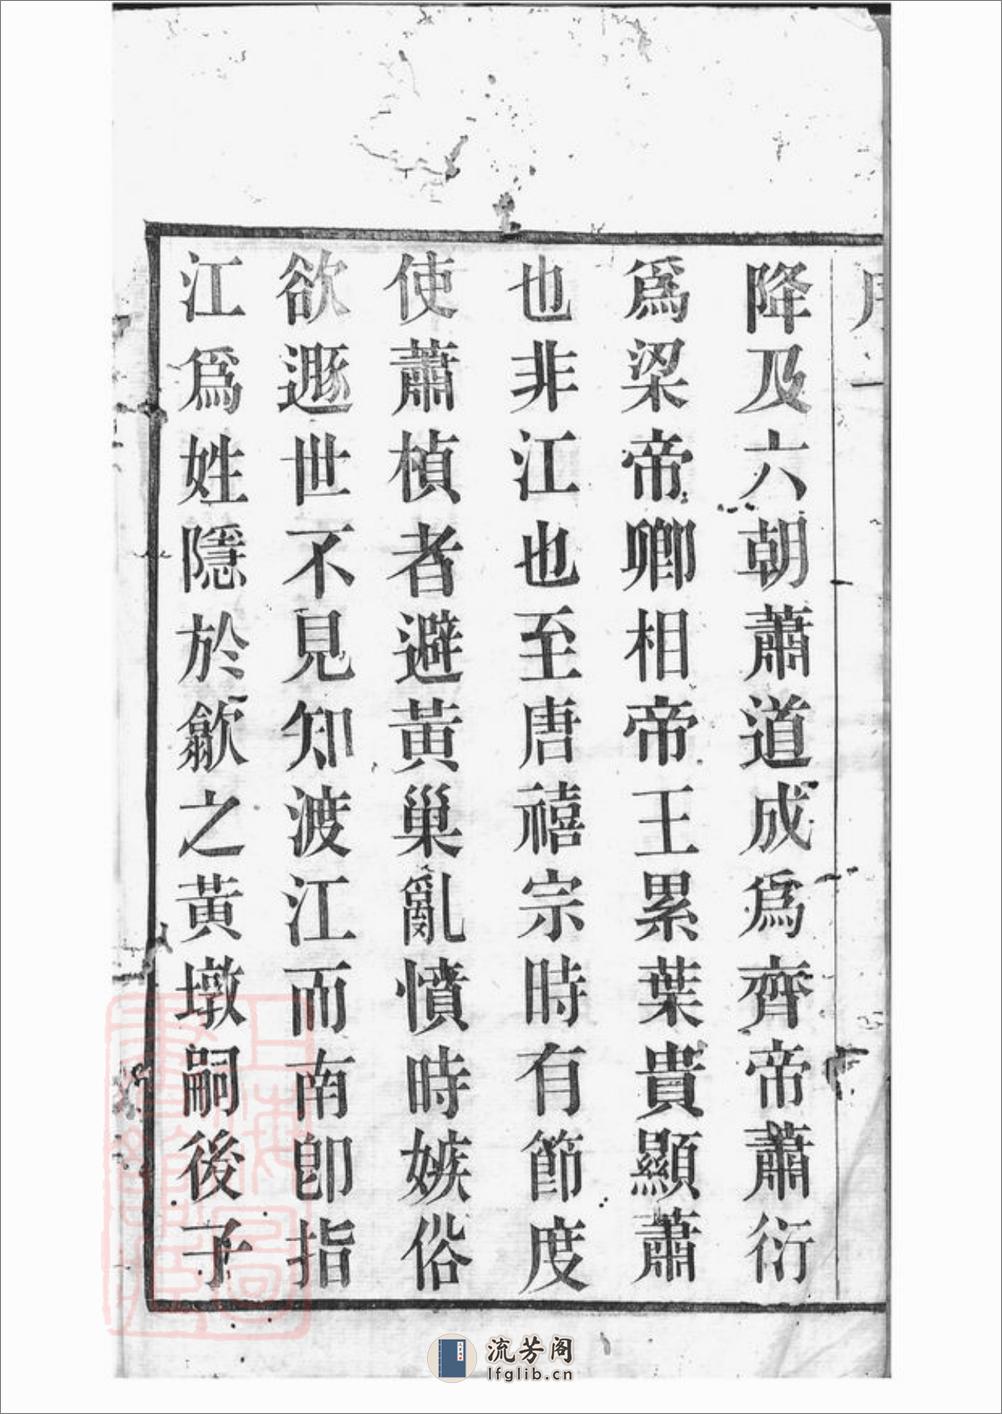 降及六朝蕭道成爲齊帝蕭衍
爲梁帝卿相帝王累葉貴顯蕭
也非江也至唐禧宗時有節度
使蕭楨者避黃巢亂憤時嫉俗
欲遯世不見知渡江而南卽指
江爲姓隱於歙之黃墩嗣後子
上海圖書館藏
流芳阁
lfglib.cn